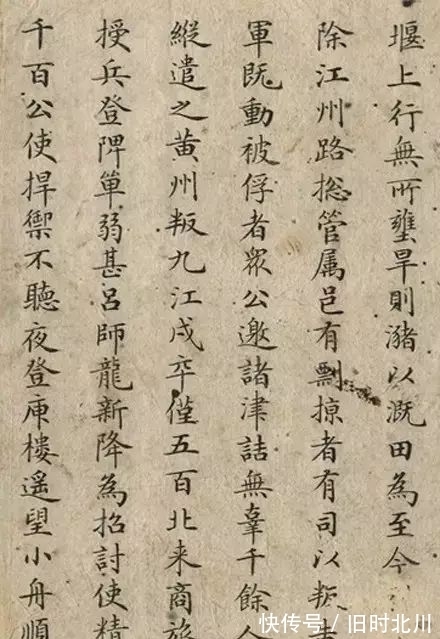 堰上行無所壅旱則瀦以溉田為至今
除江州路摠管属邑有剽掠者有司以叛
軍既動被俘者眾公邀諸津詰無辜千餘人
縱遣之黃州叛九江戍卒僅五百北来商旅
授兵登陴單弱甚吕師龍新降為招討使精
千百公使捍禦不聽夜登庾樓遥望小舟順
快传号 / 旧时北川